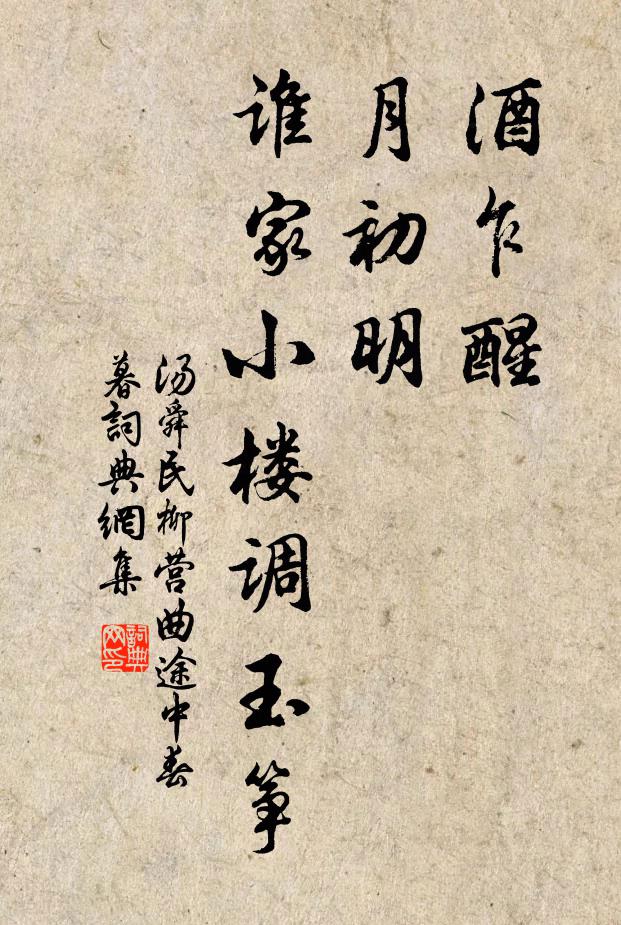 酒乍醒
月初明
谁家小楼调玉筝
汤舜民柳营曲途中春
暮词典網集
詞典网印